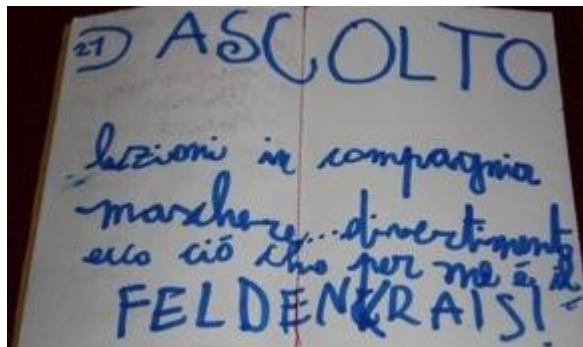 27) ASCOLTO
lezioni in compagnia
maschere... divertimento
ecco ciò che per me è il
FELDENKRAIS!